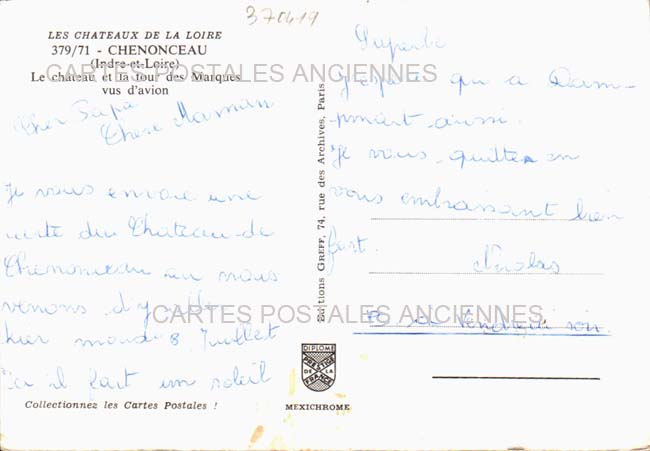 370419
LES CHATEAUX DE LA LOIRE
379/71 - CHENONCEAU
(Indre-et-Loire)
Le château et la Tour des Marques
vus d'avion
CARTES POSTALES ANCIENNES
Cher Papa
Chere Maman
Je vous envoie une
carte du Chateau de
Chenonceau
venons
hier mardi 8 Juillet
ici il fait un soleil
Collectionnez les Cartes Postales !
Editions GREFF, 74, rue des Archives, Paris
DIPLOME
PRESTIGE
DE LA
FRANCE
MEXICHROME
Superbe
J'espère qu'a Dam-
pmart aussi.
Je vous quitte en
vous embrassant bien
fort.
Nicolas
CARTES POSTALES ANCIENNES